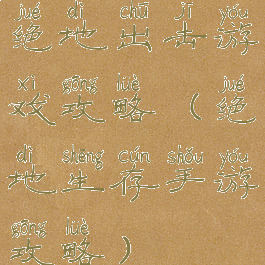 jué dì chū jī yóu
绝地出击游
xì gōng lüè jué
戏攻略（绝
dì shēng cún shǒu yóu
地生存手游
gōng lüè
攻略）